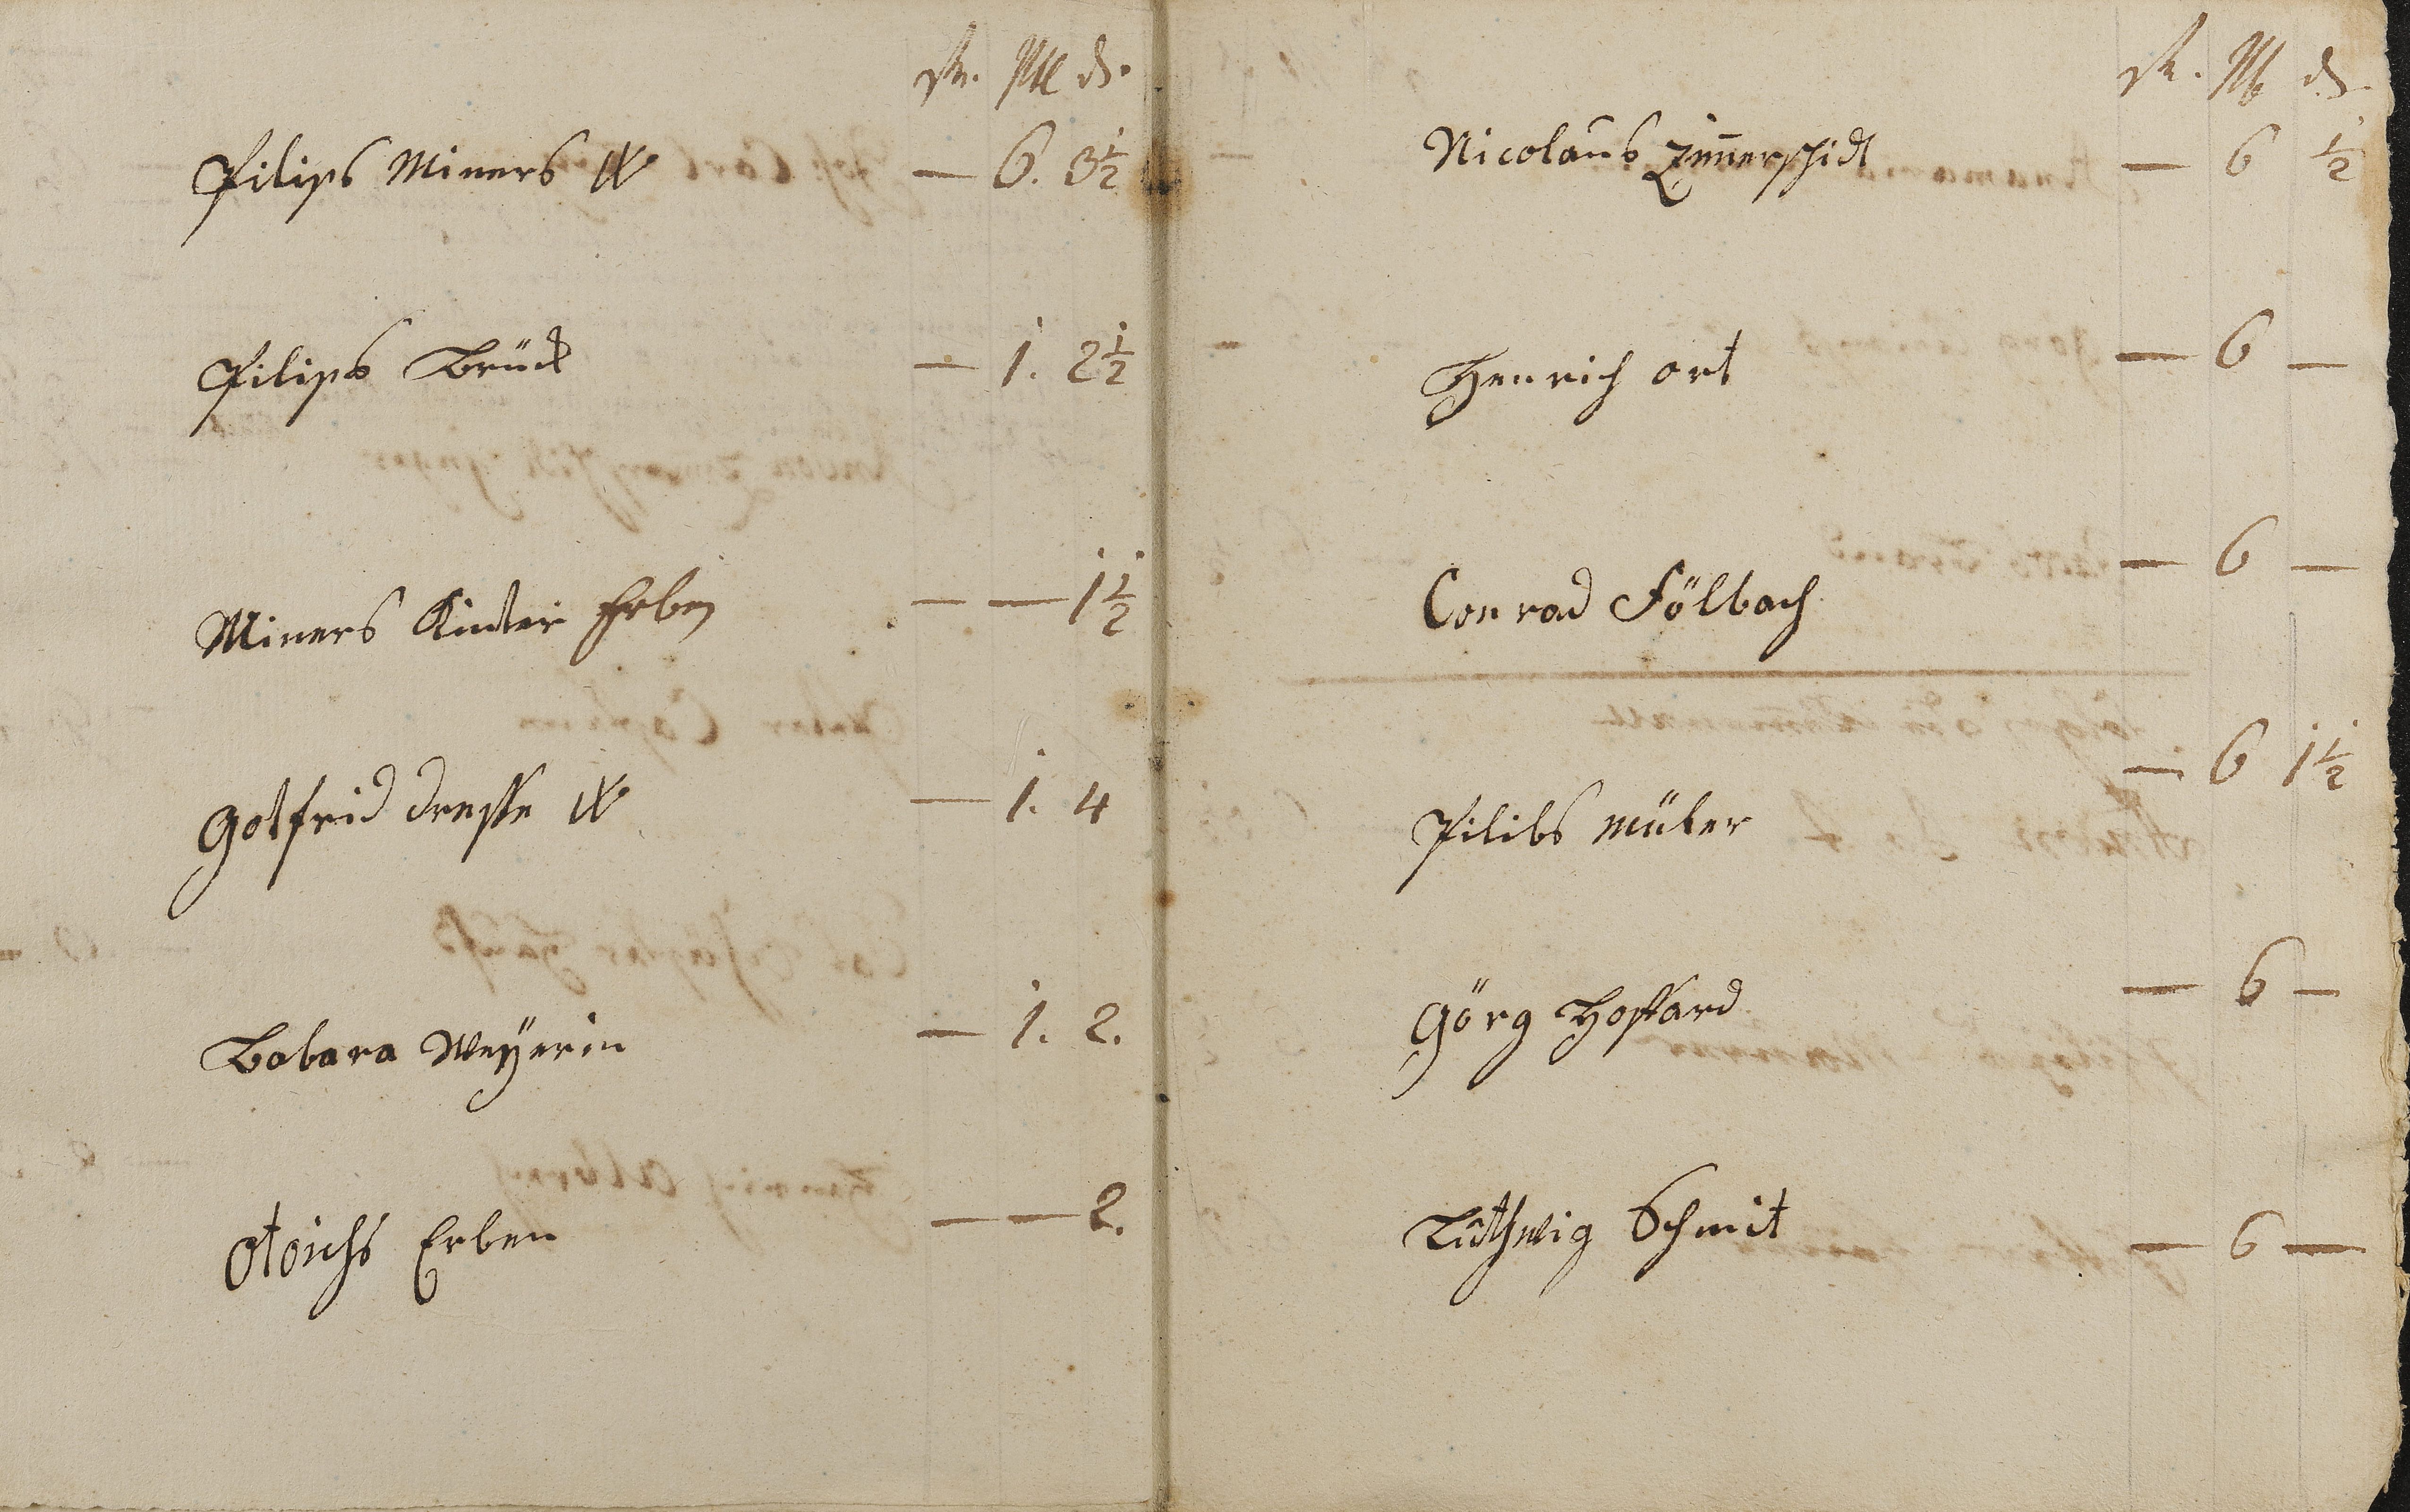 fl. Alb d.
Filips Miners W — 6. 3½
Filips Brück — 1. 2½
Miners Kinter Erben — — 1½
Gotfrid dresse W — 1. 4
Babara Meÿerin — 1. 2.
Erben — — 2.
fl. Alb d.
Nicolaus Zim̅erschidt — 6 ½
Henrich ort — 6 —
Conrad Fölbach — 6 —
Filibs Müler — 6 1½
Görg Hoffard — 6 —
Luthwig Schmit — 6 —